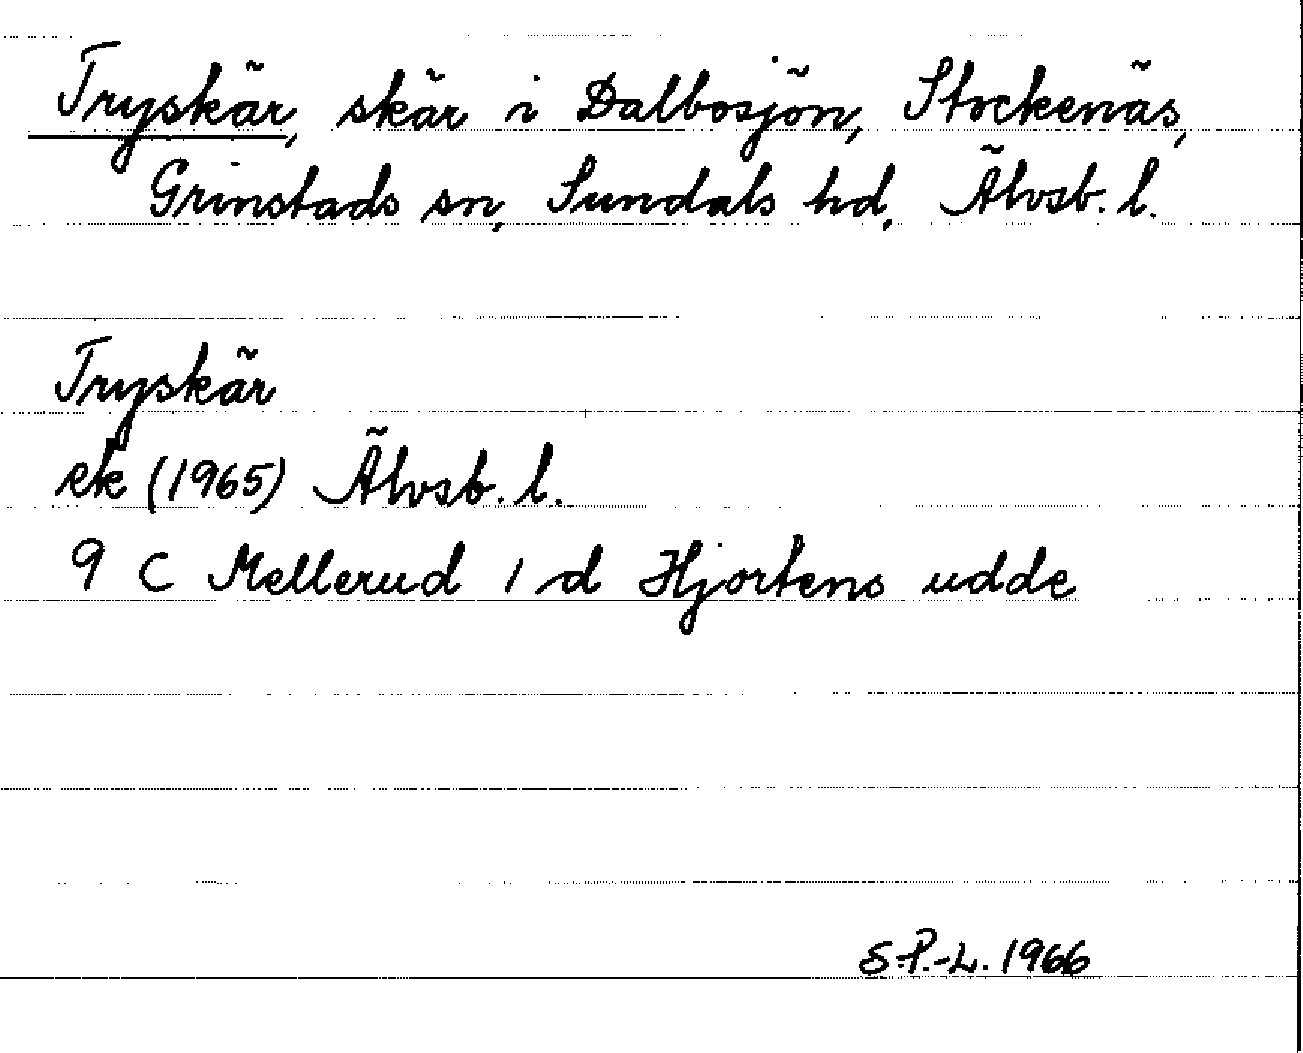 Tryskär, skär i Dalbosjön, Stockenäs,
Grinstads sn, Sundals hd, Älvsb. l.
Tryskär
ek (1965) Älvsb. l.
9 C Mellerud 1 d Hjortens udde
S.P.-L. 1966